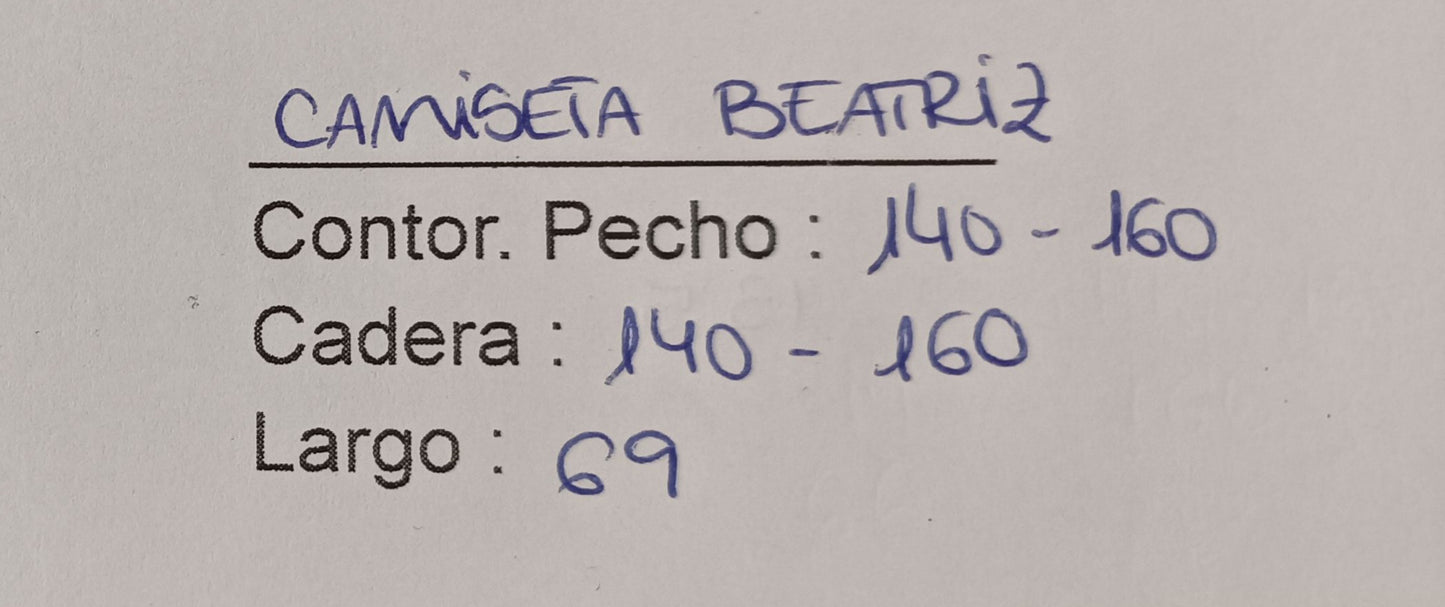 CAMISETA BEATRIZ
Contor. Pecho : 140 - 160
Cadera : 140 - 160
Largo : 69